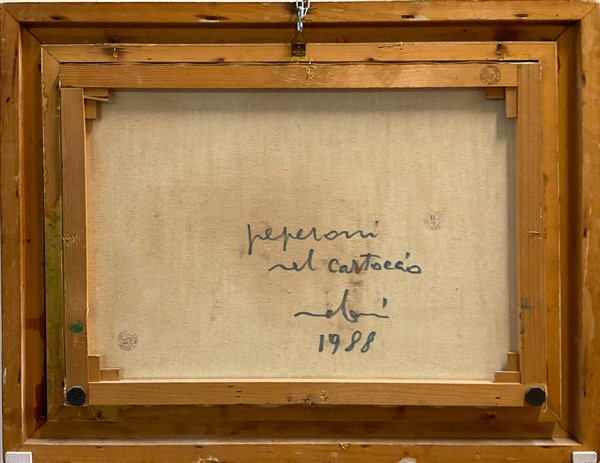 peperoni
nel cartoccio
1988